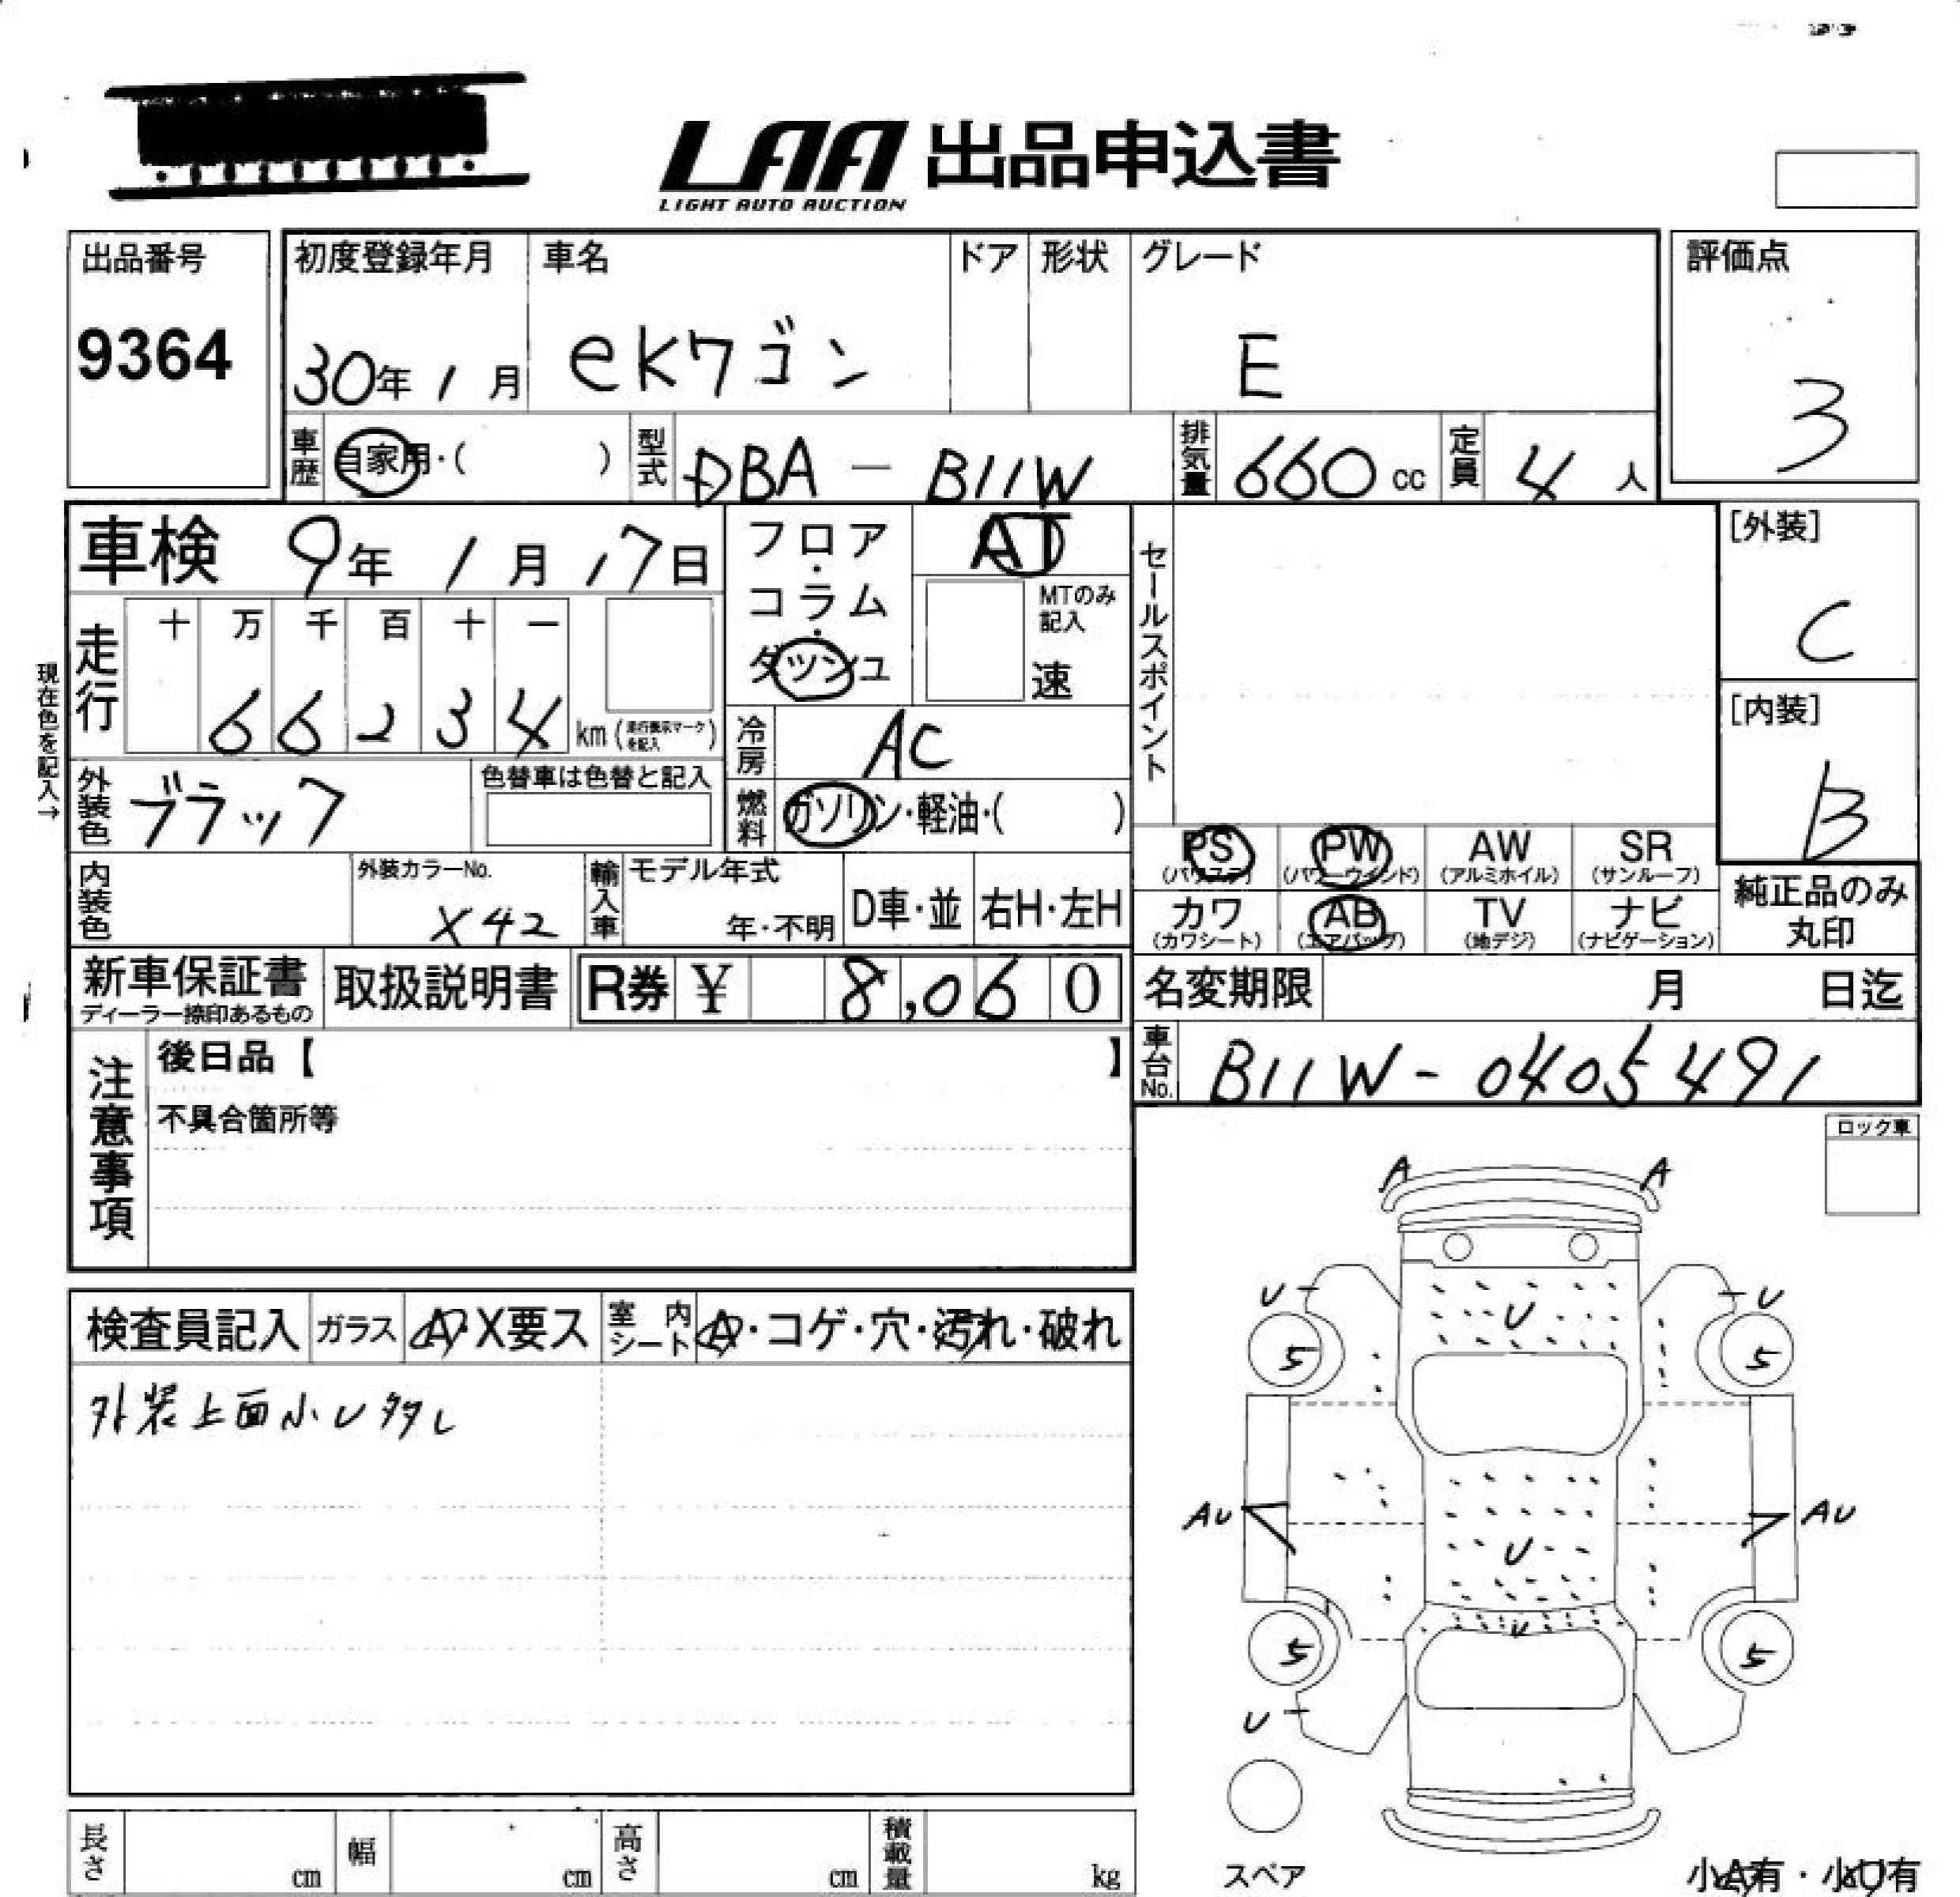 LAA 出品申込書
LIGHT AUTO AUCTION
出品番号
9364
初度登録年月
30年 1月
車名
ekワゴン
ドア
形状
グレード
E
評価点
3
車歴
自家用・( )
型式
DBA - B11W
排気量
660 cc
定員
4 人
車検 9年 1月 17日
フロア・コラム・ダッシュ
AT
MTのみ記入
速
セールスポイント
[外装]
C
[内装]
B
現在色を記入→
走行
十 万 千 百 十 一
6 6 2 3 4 km
冷房
AC
外装色
ブラック
色替車は色替と記入
燃料
ガソリン・軽油・( )
PS
(パワステ)
PW
(パワーウインド)
AW
(アルミホイル)
SR
(サンルーフ)
内装色
外装カラーNo.
X42
輸入車
モデル年式
年・不明
D車・並
右H・左H
カワ
(カワシート)
AB
(エアバッグ)
TV
(地デジ)
ナビ
(ナビゲーション)
純正品のみ
丸印
新車保証書
ディーラー捺印あるもの
取扱説明書
R券 ¥ 8,060
名変期限 月 日迄
車台No.
B11W-0405491
注意事項
後日品【 】
不具合箇所等
ロック車
検査員記入
ガラス
A・X要ス
室内シート
A・コゲ・穴・汚れ・破れ
外装上面小U多々し
A A
U U
U
5 5
AU AU
U
U
5 5
U
スペア
小A有・小U有
長さ cm
幅 cm
高さ cm
積載量 kg